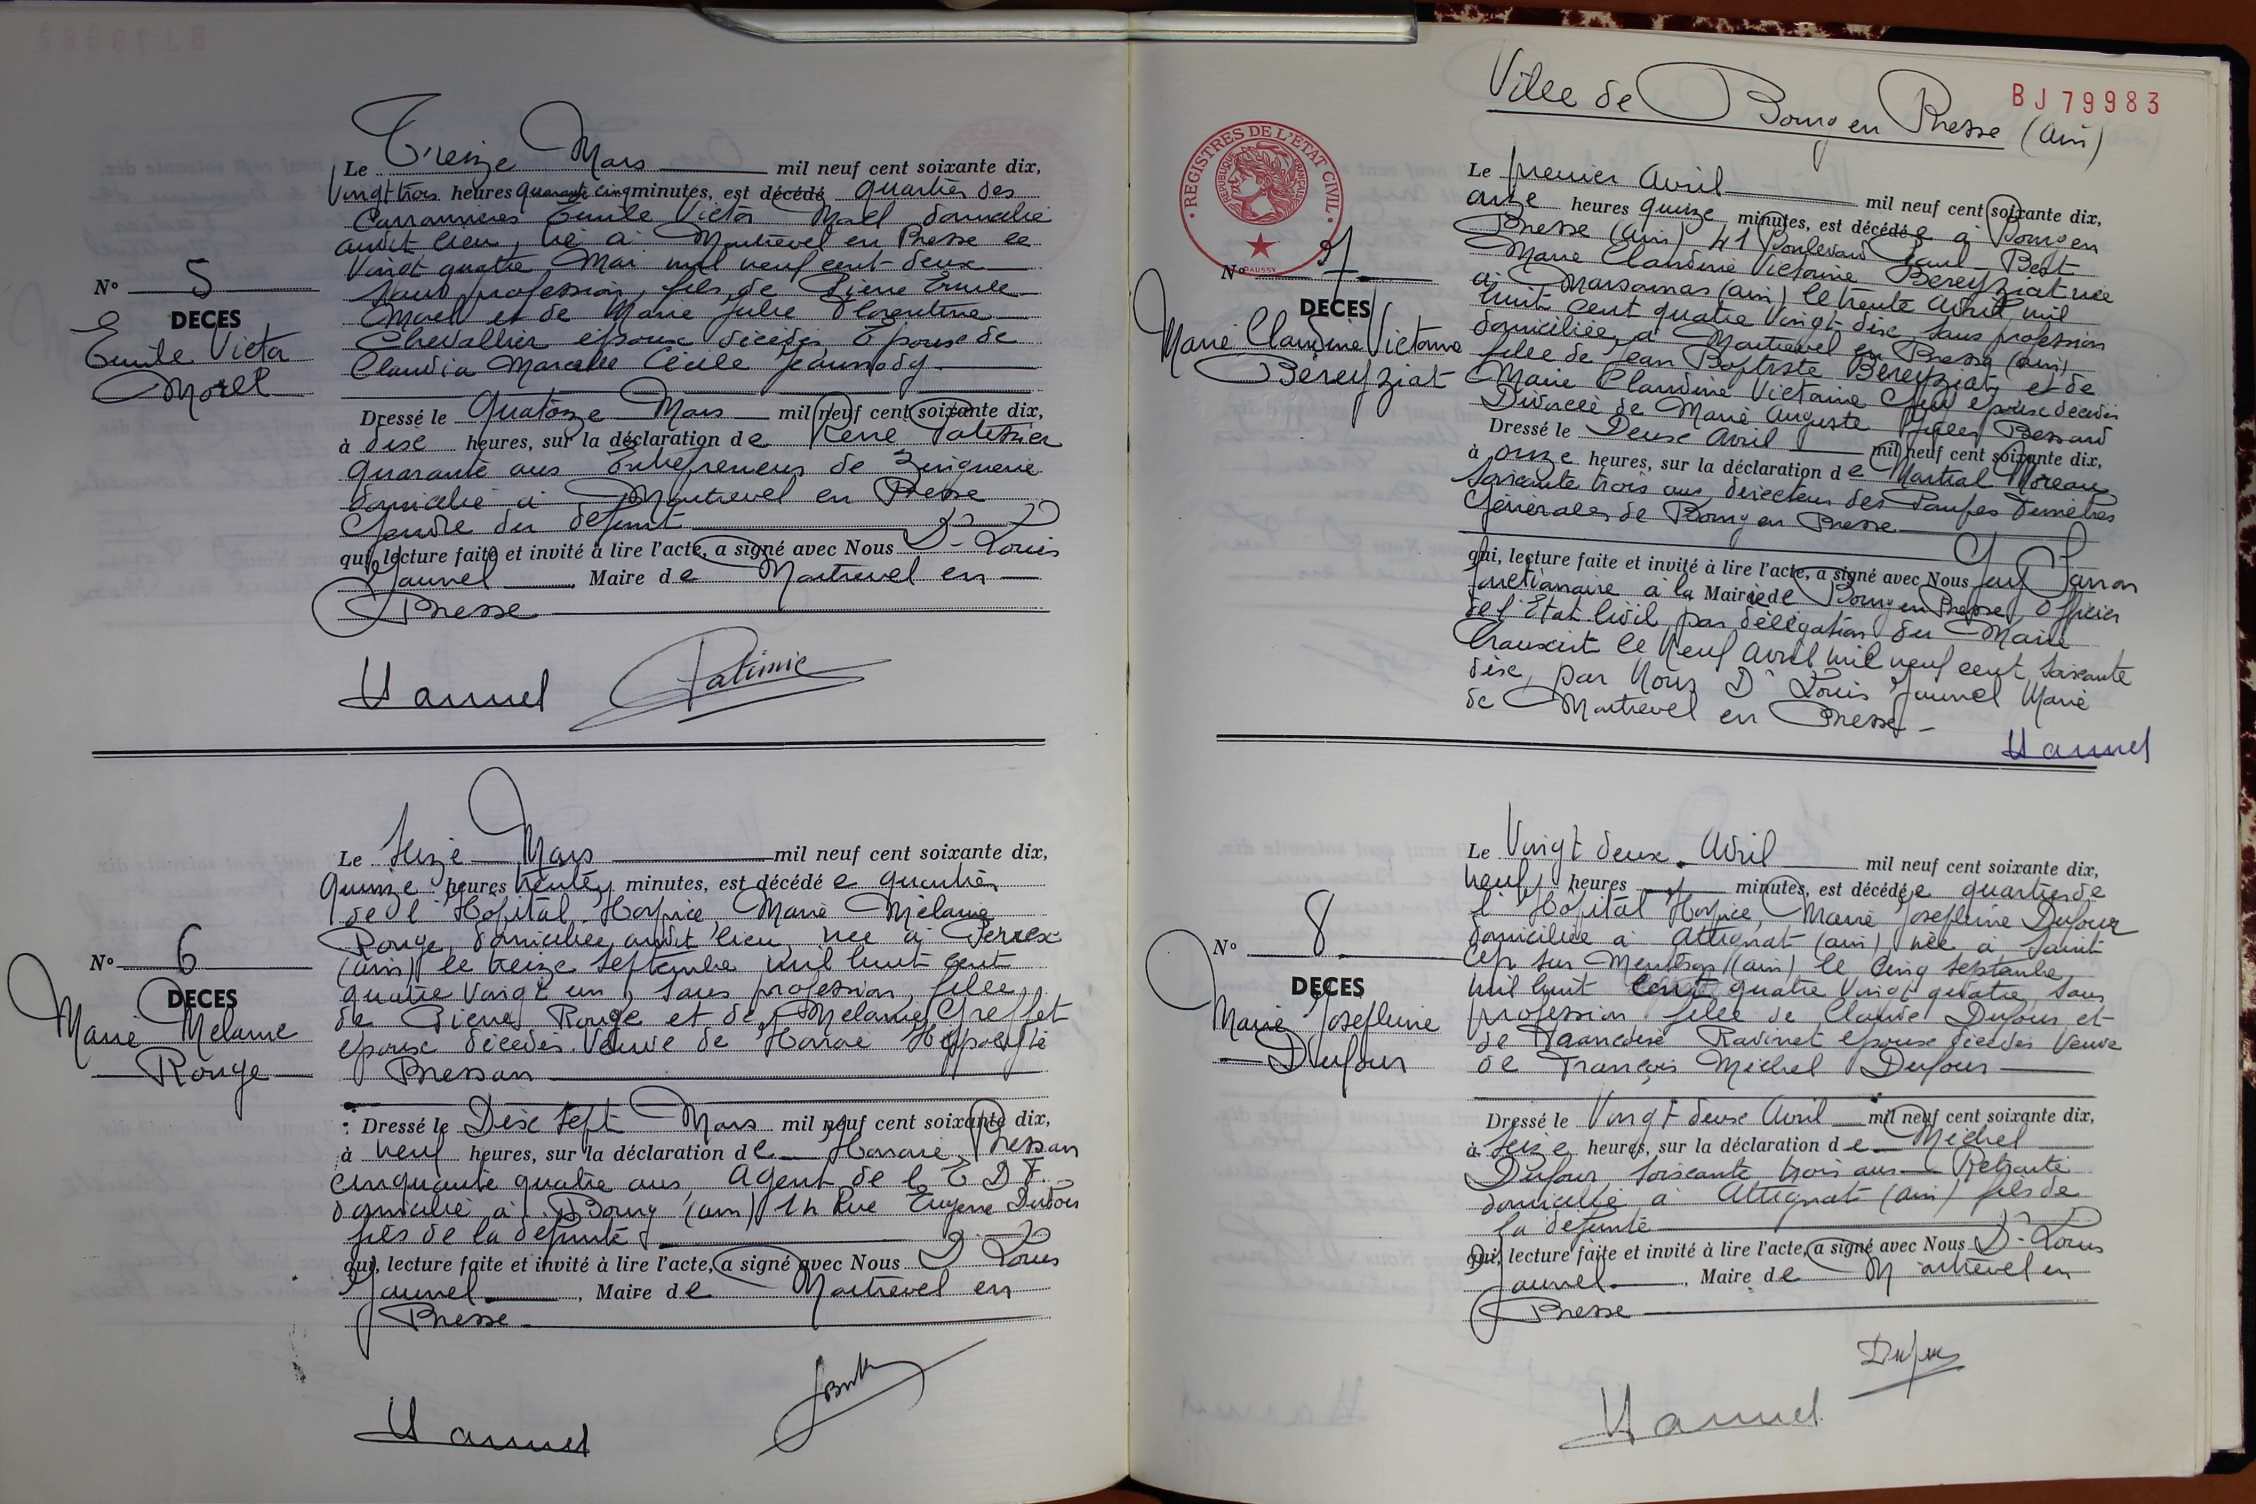 Le Treize Mars mil neuf cent soixante dix,
Vingt trois heures quarante cinq minutes, est décédé quartier des
Carronnières Emile Victor Morel domicilié
audit lieu, né à Montrevel en Bresse le
Vingt quatre Mai mil neuf cent deux
sans profession, fils de Pierre Emile
Morel et de Marie Julie Florentine
Chevallier époux décédés Epoux de
Claudia Marcelle Cécile Jeannody
N° 5
DECES
Emile Victor
Morel
Dressé le Quatorze Mars mil neuf cent soixante dix,
à dix heures, sur la déclaration de René
quarante ans Entrepreneur de Zinguerie
domicilié à Montrevel en Bresse
Gendre du défunt
qui, lecture faite et invité à lire l'acte, a signé avec Nous Dr Louis
Jaunel, Maire de Montrevel en
Bresse
Le Seize Mars mil neuf cent soixante dix,
quinze heures trente minutes, est décédée quartier
de l'Hôpital-Hospice, Marie Mélanie
Rouge, domiciliée audit lieu, née à Perrex
(Ain) le treize Septembre mil huit cent
quatre Vingt un, sans profession, fille
de Pierre Rouge et de Mélanie Greffet
époux décédés Veuve de Honoré Hippolyte
Bressan
N° 6
DECES
Marie Mélanie
Rouge
Dressé le Dix sept Mars mil neuf cent soixante dix,
à neuf heures, sur la déclaration de Honoré Bressan
cinquante quatre ans, Agent de l'E D F.
domicilié à Bourg (Ain) Rue Eugène Dubois
fils de la défunte
qui, lecture faite et invité à lire l'acte, a signé avec Nous Dr Louis
Jaunel, Maire de Montrevel en
Bresse
Ville de Bourg en Bresse (Ain)
BJ 79983
REGISTRES DE L'ETAT CIVIL
REPUBLIQUE FRANÇAISE
DAUSSY
Le premier Avril mil neuf cent soixante dix,
onze heures quinze minutes, est décédée à Bourg en
Bresse (Ain) 41 Boulevard Paul Bert
Marie Claudine Victorine Bereyziat née
à Marsonnas (Ain) le trente Avril mil
huit cent quatre Vingt dix sans profession
domiciliée à Montrevel en Bresse (Ain)
fille de Jean Baptiste Bereyziat et de
Marie Claudine Victorine époux décédés
Divorcée de Marie Auguste Jules Bessard
N° 7
DECES
Marie Claudine Victorine
Bereyziat
Dressé le Deux Avril mil neuf cent soixante dix,
à onze heures, sur la déclaration de Martial Moreau
soixante trois ans, directeur des Pompes Funèbres
Générales de Bourg en Bresse
qui, lecture faite et invité à lire l'acte, a signé avec Nous
fonctionnaire à la Mairie de Bourg en Bresse, Officier
de l'Etat Civil par délégation du Maire
Transcrit le neuf Avril mil neuf cent soixante
dix, par Nous Dr Louis Jaunel Maire
de Montrevel en Bresse
Le Vingt deux Avril mil neuf cent soixante dix,
neuf heures minutes, est décédée quartier de
l'Hôpital Hospice, Marie Joséphine Dufour
domiciliée à Attignat (Ain) née à Saint
Cyr sur Menthon (Ain) le cinq Septembre
mil huit cent quatre Vingt quatre, sans
profession fille de Claude Dufour et
de Françoise Ravinet époux décédés Veuve
de François Michel Dufour
N° 8
DECES
Marie Joséphine
Dufour
Dressé le Vingt deux Avril mil neuf cent soixante dix,
à seize heures, sur la déclaration de Michel
Dufour soixante trois ans Retraité
domicilié à Attignat (Ain) fils de
la défunte
qui, lecture faite et invité à lire l'acte, a signé avec Nous Dr Louis
Jaunel, Maire de Montrevel en
Bresse